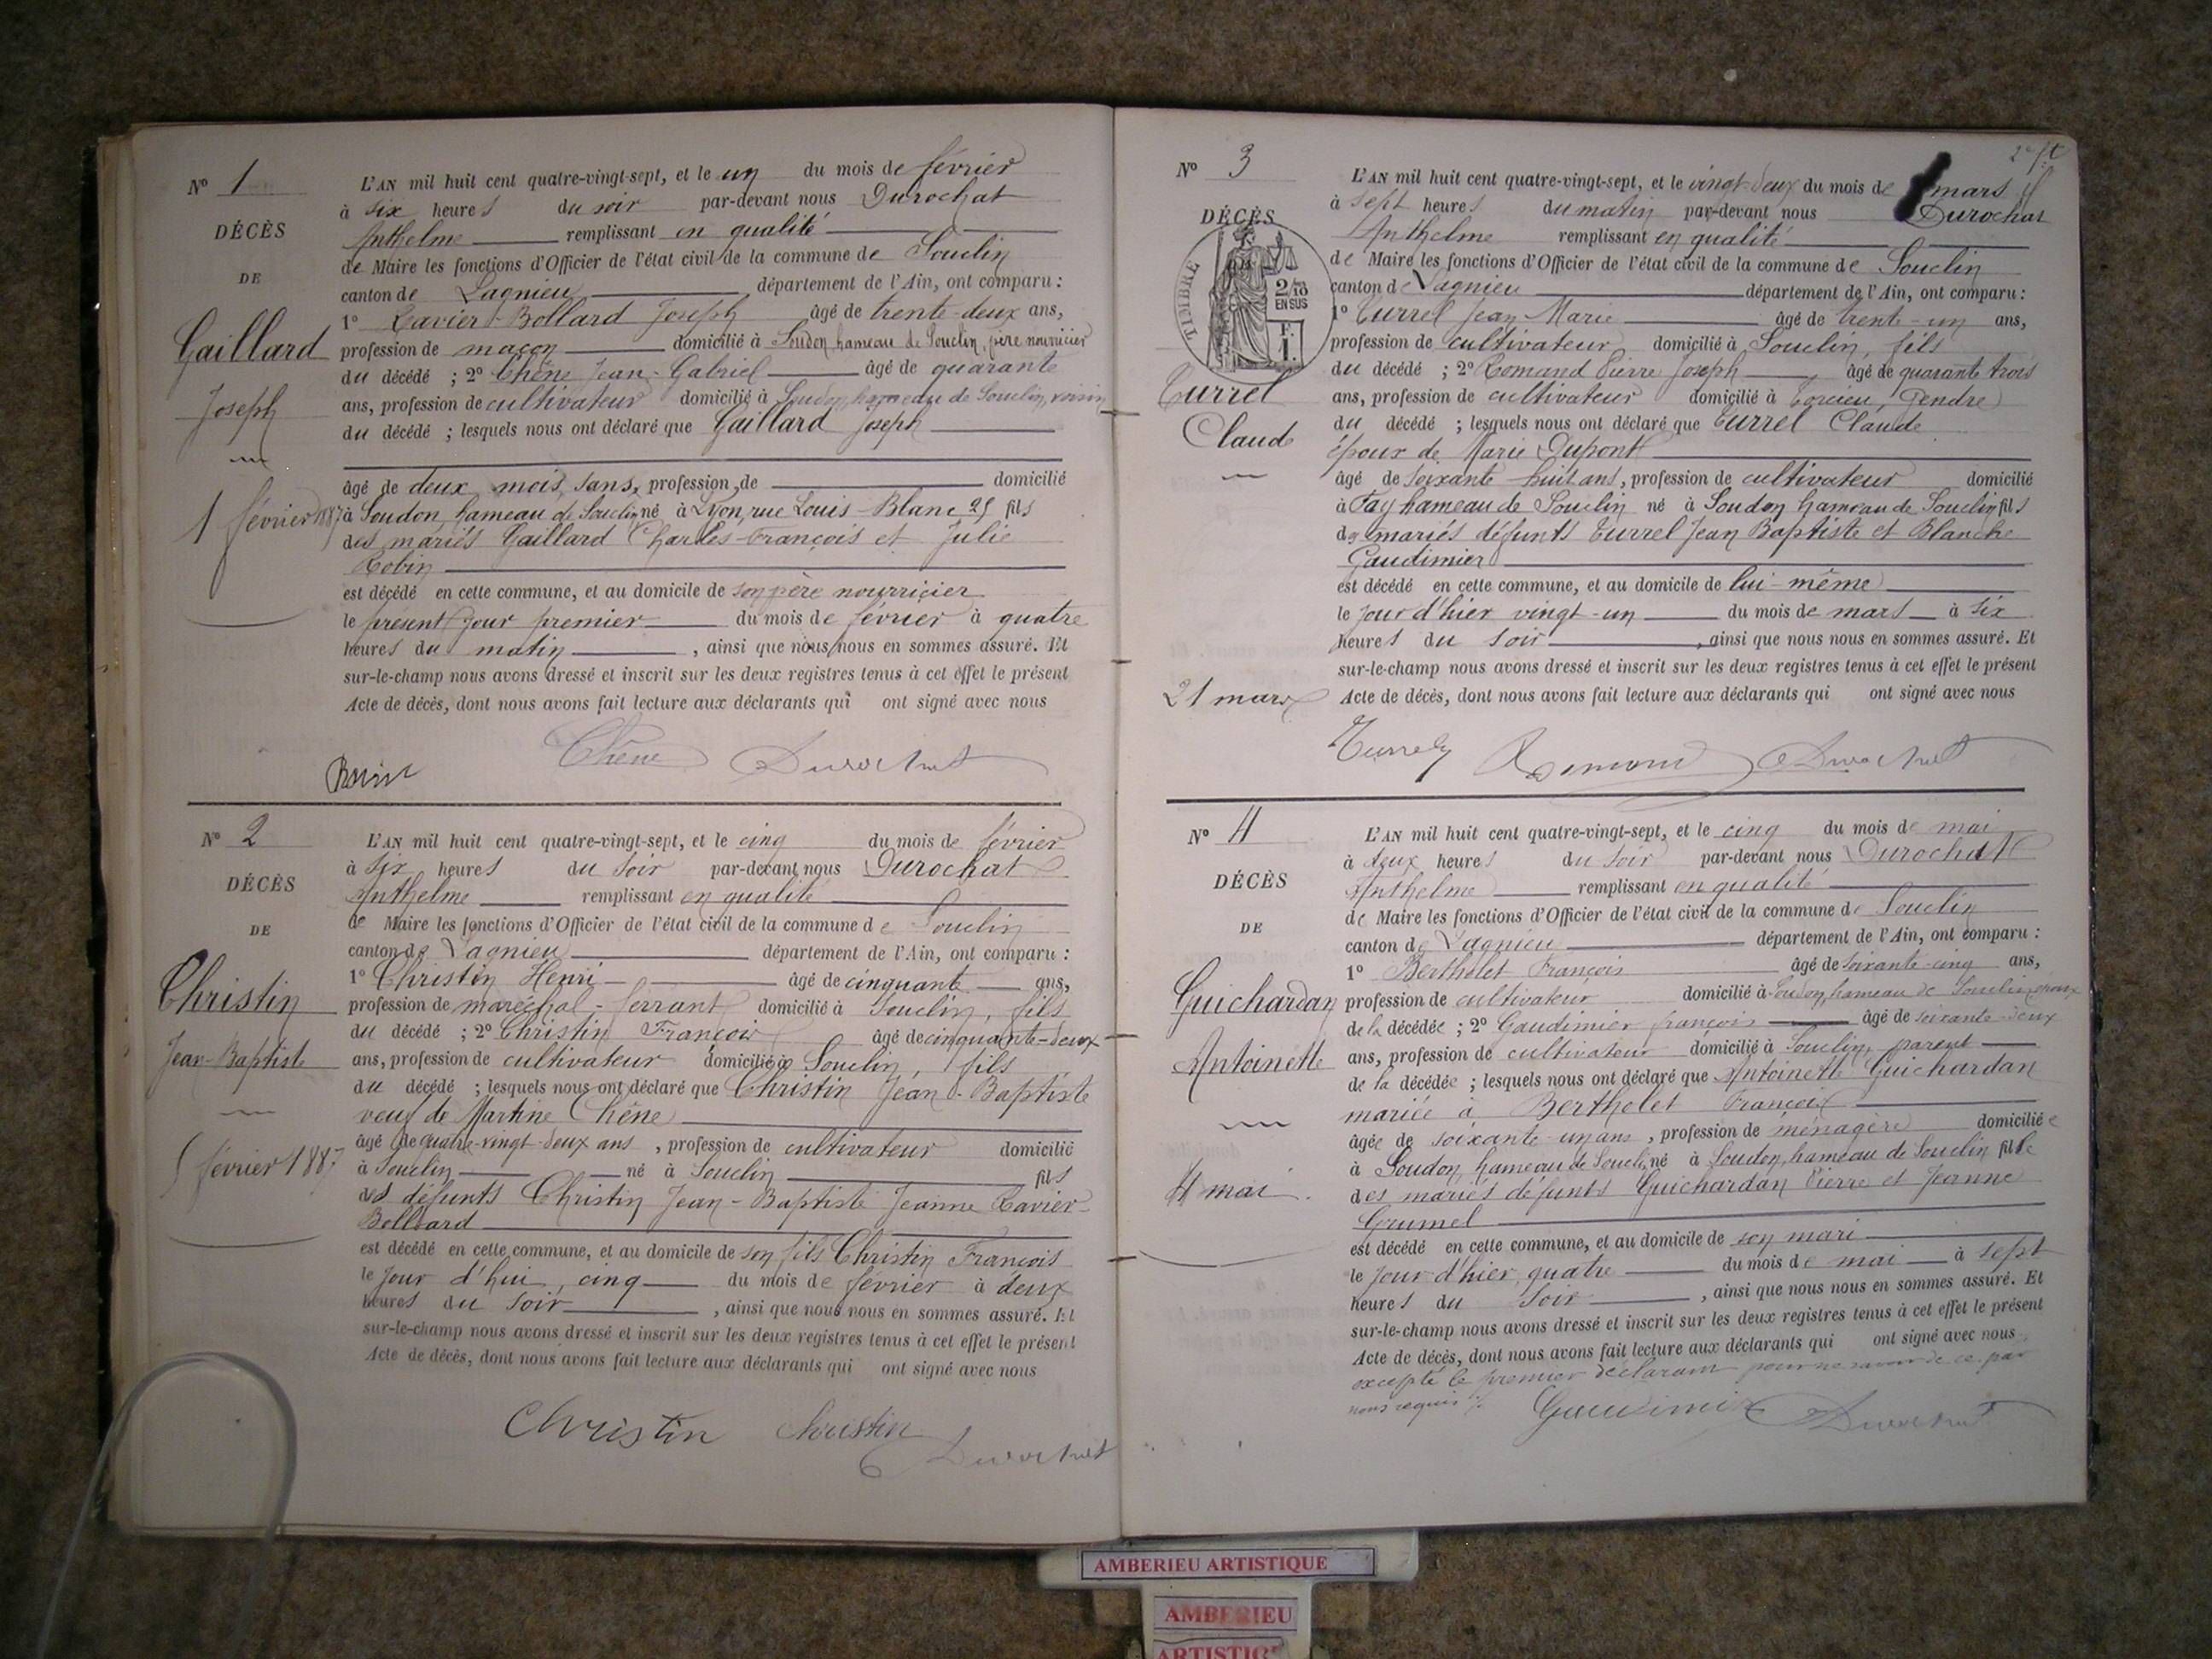 N° 1
DÉCÈS
DE
Gaillard
Joseph
1 février 1887
L'AN mil huit cent quatre-vingt-sept, et le un du mois de février
à six heures du soir par-devant nous Durochat
Anthelme remplissant en qualité
de Maire les fonctions d'Officier de l'état civil de la commune de Souclin
canton de Lagnieu département de l'Ain, ont comparu :
1° Ravier-Bollard Joseph âgé de trente-deux ans,
profession de maçon domicilié à Soudon, hameau de Souclin, père nourricier
du décédé ; 2° Chêne Jean-Gabriel âgé de quarante
ans, profession de cultivateur domicilié à Soudon, hameau de Souclin, voisin
du décédé ; lesquels nous ont déclaré que Gaillard Joseph
âgé de deux mois, sans, profession de domicilié
à Soudon, hameau de Souclin né à Lyon, rue Louis-Blanc 25 fils
des mariés Gaillard Charles-François et Julie
Robin
est décédé en cette commune, et au domicile de son père nourricier
le présent jour premier du mois de février à quatre
heures du matin, ainsi que nous nous en sommes assuré. Et
sur-le-champ nous avons dressé et inscrit sur les deux registres tenus à cet effet le présent
Acte de décès, dont nous avons fait lecture aux déclarants qui ont signé avec nous
Chêne Durochat
N° 2
DÉCÈS
DE
Christin
Jean-Baptiste
5 février 1887
L'AN mil huit cent quatre-vingt-sept, et le cinq du mois de février
à six heures du soir par-devant nous Durochat
Anthelme remplissant en qualité
de Maire les fonctions d'Officier de l'état civil de la commune de Souclin
canton de Lagnieu département de l'Ain, ont comparu :
1° Christin Henri âgé de cinquante ans,
profession de maréchal-ferrant domicilié à Souclin, fils
du décédé ; 2° Christin François âgé de cinquante-deux
ans, profession de cultivateur domicilié à Souclin, fils
du décédé ; lesquels nous ont déclaré que Christin Jean-Baptiste
veuf de Martine Chêne
âgé de quatre-vingt-deux ans, profession de cultivateur domicilié
à Souclin né à Souclin fils
des défunts Christin Jean-Baptiste Jeanne Ravier-
Bollard
est décédé en cette commune, et au domicile de son fils Christin François
le jour d'hui, cinq du mois de février à deux
heures du soir, ainsi que nous nous en sommes assuré. Et
sur-le-champ nous avons dressé et inscrit sur les deux registres tenus à cet effet le présent
Acte de décès, dont nous avons fait lecture aux déclarants qui ont signé avec nous
Christin Christin
Durochat
N° 3
DÉCÈS
TIMBRE
2/10
EN SUS
F.
1.
Turrel
Claude
21 mars
L'AN mil huit cent quatre-vingt-sept, et le vingt-deux du mois de mars
à sept heures du matin par-devant nous Durochat
Anthelme remplissant en qualité
de Maire les fonctions d'Officier de l'état civil de la commune de Souclin
canton de Lagnieu département de l'Ain, ont comparu :
1° Turrel Jean Marie âgé de trente-un ans,
profession de cultivateur domicilié à Souclin, fils
du décédé ; 2° Romand Pierre Joseph âgé de quarante trois
ans, profession de cultivateur domicilié à Torcieu, Gendre
du décédé ; lesquels nous ont déclaré que Turrel Claude
époux de Marie Dupont
âgé de soixante-huit ans, profession de cultivateur domicilié
à Fay hameau de Souclin né à Soudon hameau de Souclin fils
des mariés défunts Turrel Jean Baptiste et Blanche
Gaudimier
est décédé en cette commune, et au domicile de lui-même
le jour d'hier vingt-un du mois de mars à six
heures du soir, ainsi que nous nous en sommes assuré. Et
sur-le-champ nous avons dressé et inscrit sur les deux registres tenus à cet effet le présent
Acte de décès, dont nous avons fait lecture aux déclarants qui ont signé avec nous
Turrel Romand Durochat
N° 4
DÉCÈS
DE
Guichardan
Antoinette
4 mai
L'AN mil huit cent quatre-vingt-sept, et le cinq du mois de mai
à deux heures du soir par-devant nous Durochat
Anthelme remplissant en qualité
de Maire les fonctions d'Officier de l'état civil de la commune de Souclin
canton de Lagnieu département de l'Ain, ont comparu :
1° Berthelet François âgé de soixante-cinq ans,
profession de cultivateur domicilié à Soudon, hameau de Souclin, époux
de la décédée ; 2° Gaudimier François âgé de soixante-deux
ans, profession de cultivateur domicilié à Souclin, parent
de la décédée ; lesquels nous ont déclaré que Antoinette Guichardan
mariée à Berthelet François
âgée de soixante-un ans, profession de ménagère domiciliée
à Soudon, hameau de Souclin né à Soudon, hameau de Souclin fille
des mariés défunts Guichardan Pierre et Jeanne
Grumel
est décédé en cette commune, et au domicile de son mari
le jour d'hier, quatre du mois de mai à sept
heures du soir, ainsi que nous nous en sommes assuré. Et
sur-le-champ nous avons dressé et inscrit sur les deux registres tenus à cet effet le présent
Acte de décès, dont nous avons fait lecture aux déclarants qui ont signé avec nous
excepté le premier déclarant pour ne savoir de ce par
nous requis
Gaudimier Durochat
AMBERIEU ARTISTIQUE
AMBERIEU
ARTISTIQ